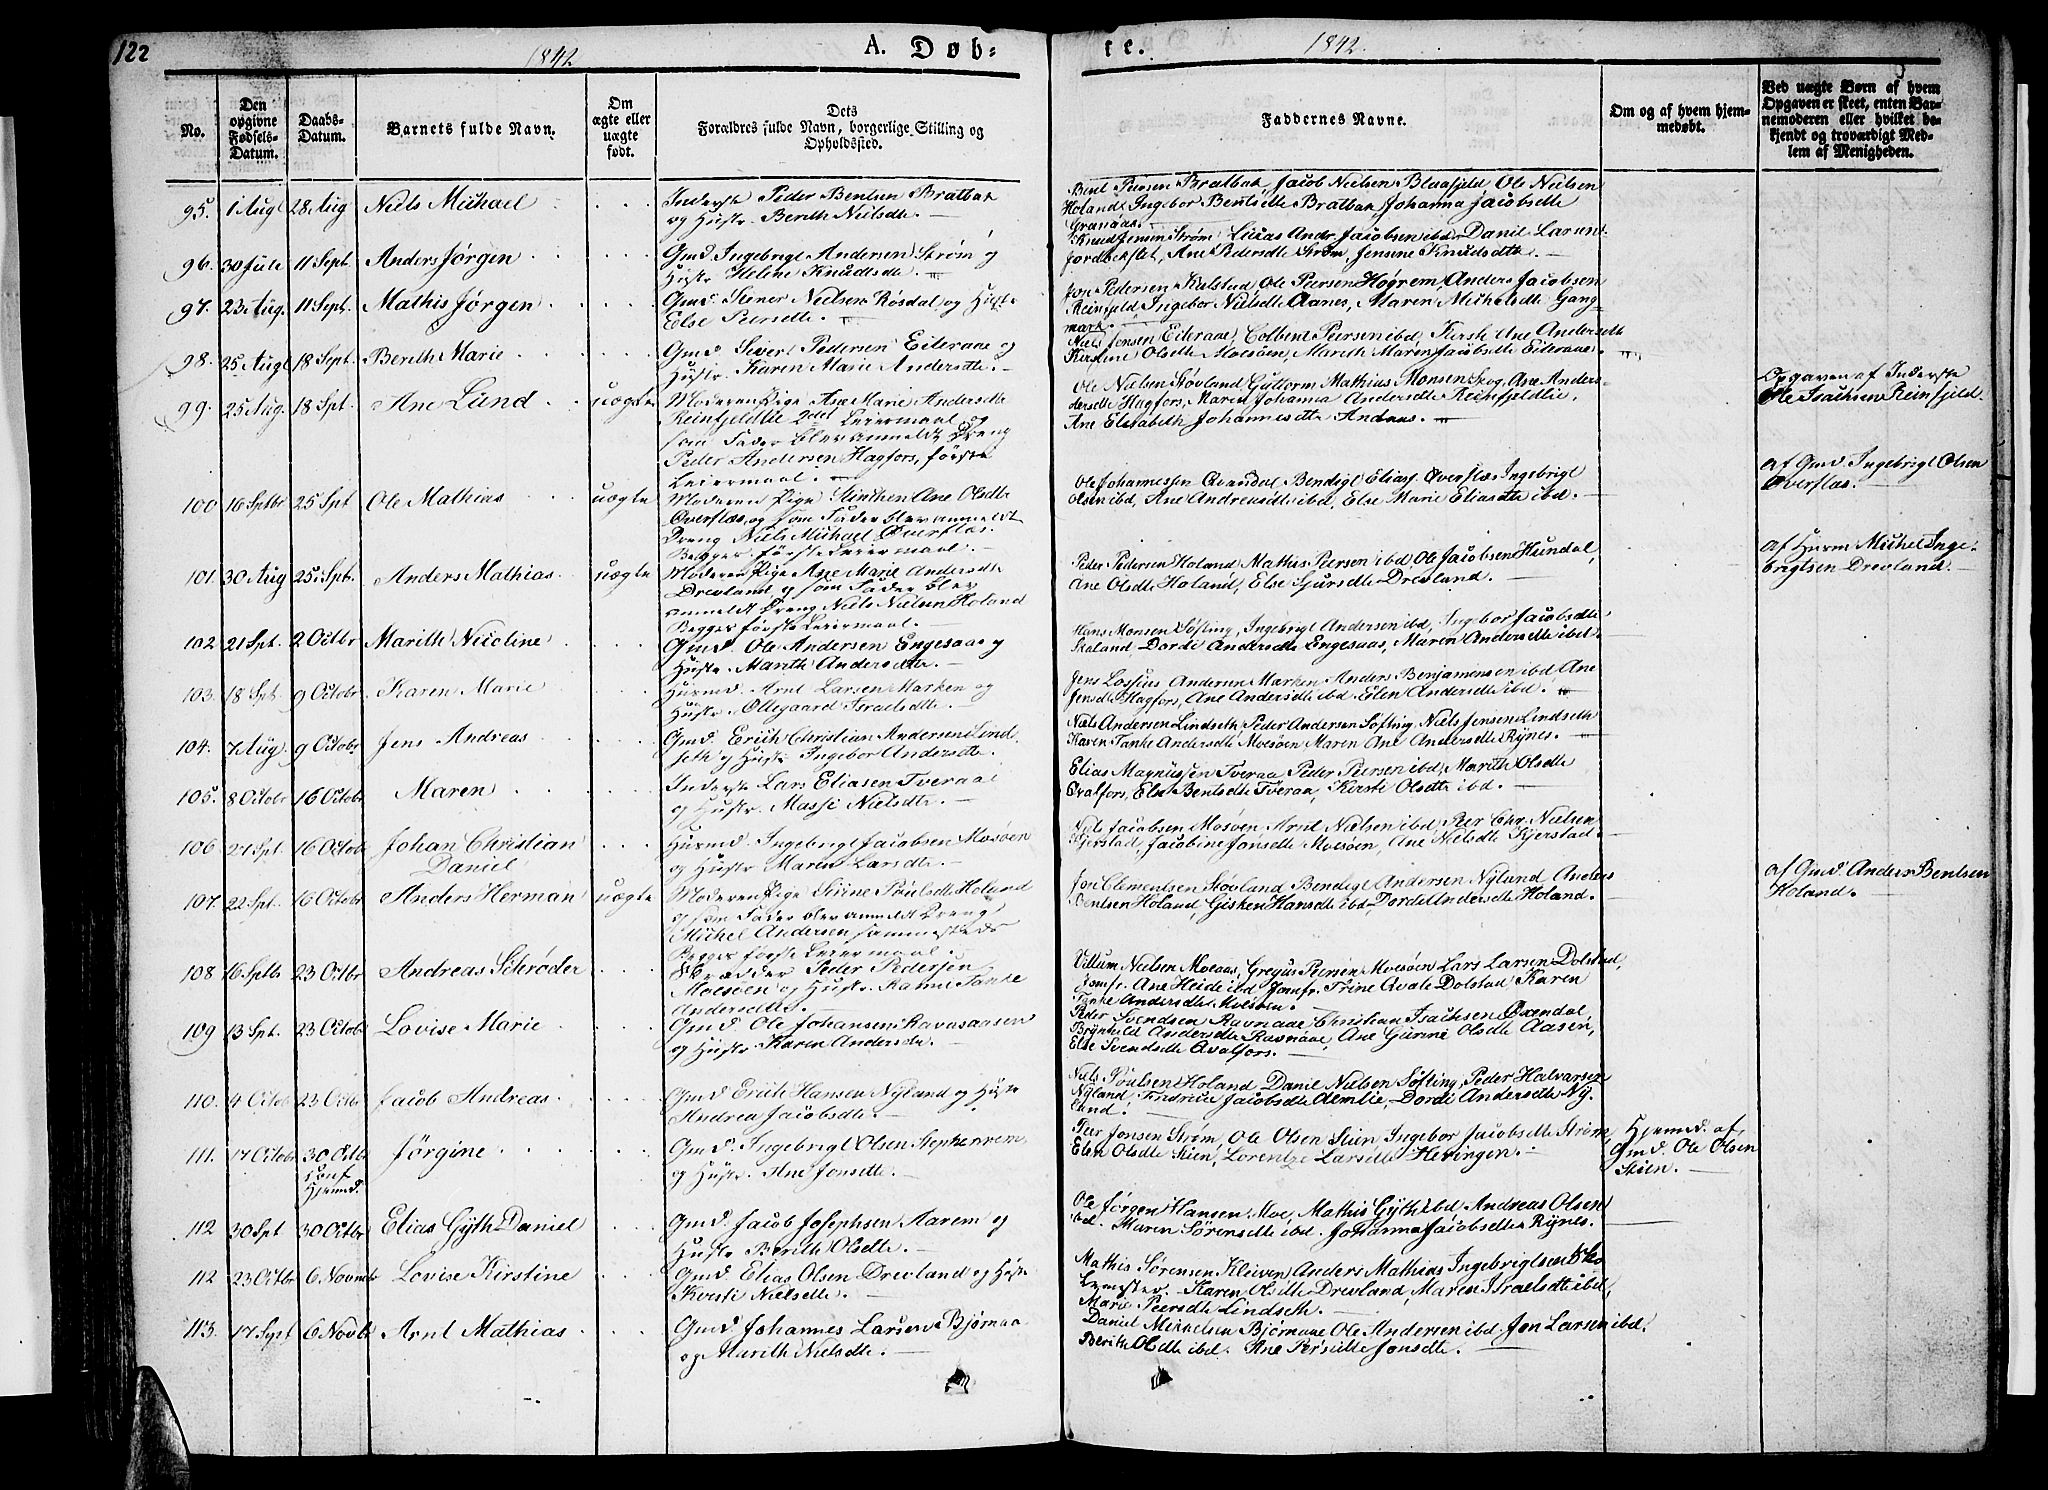 122
1842
A. Døb-
te.
1842.
No.
Den opgivne Fødsels-Datum.
Daabs-Datum.
Barnets fulde Navn.
Om ægte eller uægte født.
Dets Forældres fulde Navn, borgerlige Stilling og Opholdssted.
Faddernes Navne.
Om og af hvem hjem-medøbt.
Ved uægte Børn af hvem Opgaven er skeet, enten Bar-nemoderen eller hvilket be-kjendt og troværdigt Med-lem af Menigheden.
95. 1 Augt 28 Aug Niels Michael
Inderste Peder Bentsen Bratbak
og Hustr. Berith Nielsdtr.
Bent Peersen Bratbak, Jacob Nielsen Blaafjeld, Ole Nielsen
Holand, Ingebor Bentsdtr Bratbak, Johanna Jacobsdtr
Granaas.
96. 30 Juli 11 Sept. Anders Jørgen
Gmd. Ingebrigt Andersen Strøm og
Hustr. Helene Knudsdtr.
Knud Jensen Strøm, Lucas Andr. Jacobsen ibd. Daniel Larsen
Jordbækslet, Ane Pedersdtr Strøm, Jensine Knudsdtr.
97. 23 Aug. 11 Sept. Mathis Jørgen
Gmd. Stener Nielsen Røsdal og Hustr.
Else Peersdtr.
Jon Pedersen Kulstad, Ole Peersen Høgrem, Anders Jacobsen
Reinfjeld, Ingebor Nielsdtr Aanes, Maren Michelsdtr Gang-
mark.
98. 25 Augt 18 Sept. Berith Marie
Gmd. Sivert Pedersen Eiteraae og
Hustr. Karen Marie Andersdtr.
Niels Jonsen Eiteraae, Colbent Peersen ibd, Kirsti Ane Andersdtr
Kirstine Olsdtr Moesøen, Marith Maren Jacobsdtr Eiteraae.
99. 25 Aug. 18 Sept. Ane Lund uægte
Moderen Pige Ane Marie Andersdtr
Reinfjeldlie 2det Leiermaal og
som Fader blev anmeldt Dreng
Peder Andersen Hagfors, første
Leiermaal.
Ole Nielsen Støvland, Guttorm Mathias Monsen Skog, Ane Anders-
dersdtr Hagfors, Maren Johanna Andersdtr Reinfjeldlie
Ane Elisabeth Johannesdtr Andaas.
Opgaven af Inderste
Ole Isachsen Reinfjeld.
100 16 Septbr 25 Spt Ole Mathias uægte
Moderen Pige Stinchen Ane Olsdtr
Øverflæs, og som Fader blev anmeldt
Dreng Niels Michael Øverflæs.
Begges første Leiermaal.
Ole Johannessen Qvandal, Bendigt Eliass. Øverflæs, Ingebrigt
Olsen ibd, Ane Andreasdtr ibd, Else Marie Eliasdtr ibd.
Af Gmd. Ingebrigt Olsen
Øverflæs.
101. 30 Aug 25 Spt. Anders Mathias uægte
Moderen Pige Ane Marie Andersdtr
Drevland og som Fader blev
anmeldt Dreng Niels Nielsen Holand
Begges første Leiermaal.
Peder Pedersen Holand, Mathis Peersen ibd, Ole Jacobsen Hundal,
Ane Olsdtr Holand, Else Sjursdtr Drevland.
Af Husm Michel Inge-
brigtsen Drevland.
102 21 Spt. 2 Octbr Marith Nicoline
Gmd. Ole Andersen Engesaas og
Hustr. Marith Andersdtr.
Hans Monsen Søfting, Ingebrigt Andersen ibd, Ingebor Jacobsdtr
Skaland, Dordi Andersdtr Engesaas, Maren Andersdtr ibd.
103. 18 Spt. 9 Octobr Karen Marie
Husmd. Arnt Larsen Marken og
Hustr. Ollegaard Israelsdtr.
Jens Lossius Andersen Marken, Anders Benjaminsen ibd Ane
Jensdtr Hagfors, Ane Andersdtr ibd. Elen Andersdtr ibd.
104. 7 Aug 9 Octobr Jens Andreas
Gmd. Erich Christian Andersen Lind-
seth og Hustr Ingebor Andersdtr.
Niels Andersen Lindseth, Peder Andersen Søfting, Niels Jensen Lindseth
Karen Tanke Andersdtr Moesøen, Maren Ane Andersdtr Rynes.
105. 8 Octobr 16 Octobr Maren
Inderste Lars Eliasen Tveraae
og Hustr. Massi Nielsdtr.
Elias Magnussen Tveraa, Peder Peersen ibd, Marith Olsdtr
Qvalfors, Else Bentsdtr Tveraa, Kirsti Olsdtr ibd.
106 21 Spt. 16 Octobr Johan Christian
Daniel
Husmd. Ingebrigt Jacobsen Mosøen
og Hustr. Maren Larsdtr.
Niels Jacobsen Mosøen, Arnt Nielsen ibd, Peer Chr. Nielsen
Kjerstad, Jacobine Jonsdtr Moesøen, Ane Nielsdtr Kjerstad.
107. 22 Spt. 16 Octobr Anders Herman uægte
Moderen Pige Stine Poulsdtr Holand
og som Fader blev anmeldt Dreng
Michel Andersen sammesteds
Begges første Leiermaal.
Jon Clementsen Støvland, Bendigt Andersen Nyland, Anders
Bentsen Holand, Gisken Hansdtr ibd, Dordi Andersdtr Holand.
Af Gmd. Anders Bentsen
Holand.
108 16 Sptb 23 Octbr Andreas Schrøder
Skrædder Peder Pedersen
Moesøen og Hustr. Karen Tanke
Andersdtr.
Villum Nielsen Moeaas, Gregus Peersen Moesøen, Lars Larsen Dolstad,
Jomfr. Ane Heide ibd, Jomfr. Trine Qvale Dolstad, Karen
Tanke Andersdtr Moesøen.
109 13 Spt. 23 Octobr Lovise Marie
Gmd. Ole Johansen Ravnaasen
og Hustr Karen Andersdtr.
Peder Svendsen Ravnaae, Christian Isachsen Øxendal,
Brynhild Andersdtr Ravnaae, Ane Gurine Olsdtr Aasen,
Else Svendsdtr Qvalfors.
110. 4 Octob 23 Octbr Jacob Andreas
Gmd. Erich Hansen Nyland og Hustr
Andrea Jacobsdtr
Niels Poulsen Holand, Daniel Nielsen Søfting, Peder Halvorsen
Nyland, Fredrikke Jacobsdtr Aemlie, Dordi Andersdtr Ny-
land.
111. 17 Octobr 30 Octb Conf. Hjemd. Jørgine
Gmd. Ingebrigt Olsen Stephenrem
og Hustr. Ane Jonsdtr.
Peer Jonsen Strøm, Ole Olsen Stien, Ingebor Jacobsdtr Strøm
Elen Olsdtr Stien, Lorentze Larsdtr Hevingen.
Hjemd. af
Gmd. Ole Olsen
Stien.
112 30 Spt 30 Octbr Elias Gyth Daniel
Gmd. Jacob Josephsen Aarem og
Hustr Berith Olsdtr.
Ole Jørgen Hansen Moe, Mathis Gyth ibd, Andreas Olsen
ibd. Maren Sørensdtr ibd. Johanna Jacobsdtr Rynes.
112 23 Octbr 6 Novmb Lovise Kirstine
Gmd. Elias Olsen Drevland og Hustr
Kirsti Nielsdtr.
Mathis Sørensen Kleiven, Anders Mathias Ingebrigtsen Sko-
lemester, Karen Olsdtr Drevland, Maren Israelsdtr ibd,
Marie Peersdtr Lindseth.
113. 17 Sept 6 Novb Arnt Mathias
Gmd. Johannes Larsen Bjørnaa
og Marith Nielsdtr.
Daniel Mikkelsen Bjørnaae, Ole Andersen ibd. Jon Larsen ibd.
Berith Olsdtr ibd. Ane Persille Jonsdtr.